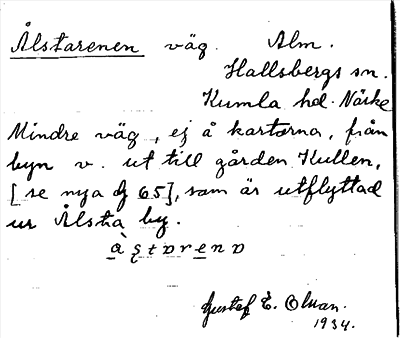 Ålstarenen väg. Alm.
Hallsbergs sn.
Kumla hd. Närke
Mindre väg, ej å kartorna, från
byn v. ut till gården Kullen,
[se nya 65], som är utflyttad
ur Ålsta by.
Gustaf E. Olsson.
1934.